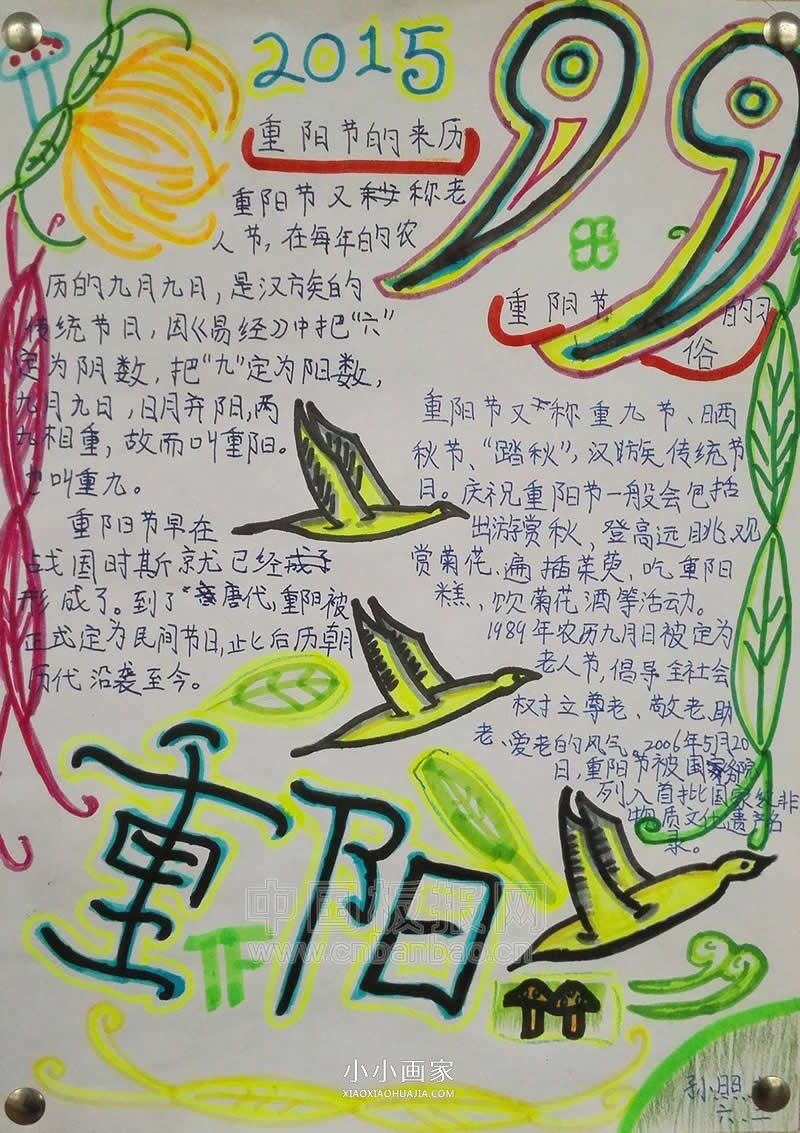 2015
99
重阳节的来历
重阳节又称老
人节，在每年的农
历的九月九日，是汉族的
传统节日，因《易经》中把“六”
定为阴数，把“九”定为阳数，
九月九日，日月并阳，两
九相重，故而叫重阳。
也叫重九。
重阳节早在
战国时斯就已经
形成了。到了唐代，重阳被
正式定为民间节日，此后历朝
历代沿袭至今。
重阳节的习
俗
重阳节又称重九节、晒
秋节、“踏秋”，汉族传统节
日。庆祝重阳节一般会包括
出游赏秋，登高远眺、观
赏菊花、遍插茱萸，吃重阳
糕、饮菊花酒等活动。
1989年农历九月日被定为
老人节，倡导全社会
树立尊老、敬老、助
老、爱老的风气。2006年5月20
日，重阳节被国务院
列入首批国家级非
物质文化遗产名
录。
重阳
中国板报网
www.cnbanbao.cn
小小画家
XIAOXIAOHUAJIA.COM
孙照
六、二